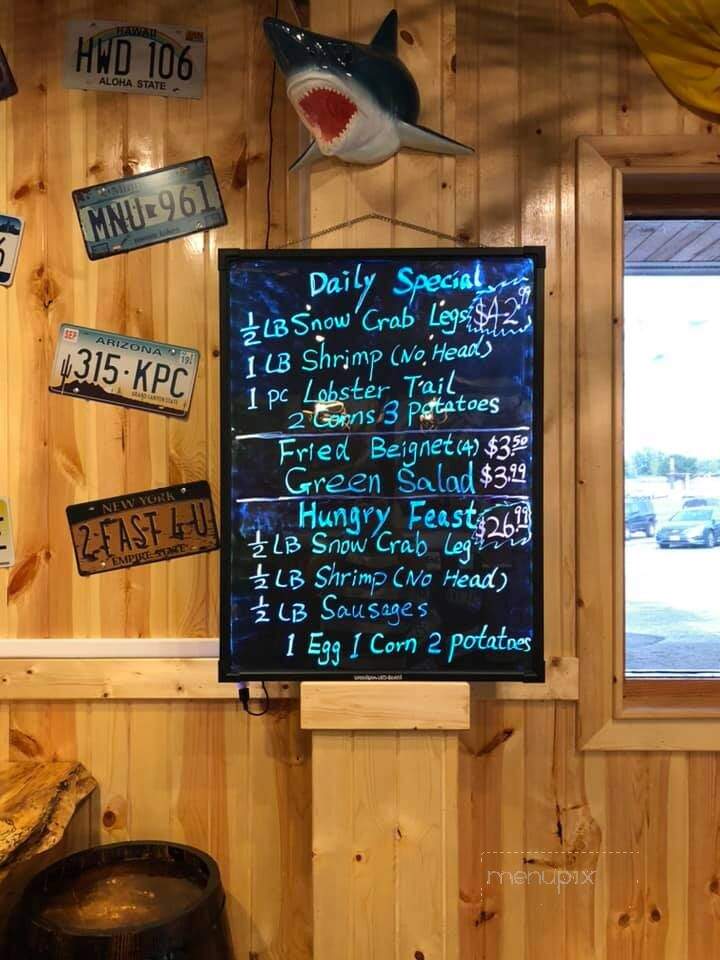 HAWAII
HWD 106
ALOHA STATE
MNU 961
SEP
ARIZONA
19
315·KPC
GRAND CANYON STATE
NEW YORK
2-FAST 4-U
EMPIRE STATE
Daily Special
½ LB Snow Crab Legs $42.99
1 LB Shrimp (No Head)
1 PC Lobster Tail
2 Corns 3 Potatoes
Fried Beignet(4) $3.50
Green Salad $3.99
Hungry Feast $26.99
½ LB Snow Crab Leg
½ LB Shrimp (No Head)
½ LB Sausages
1 Egg 1 Corn 2 potatoes
menupix